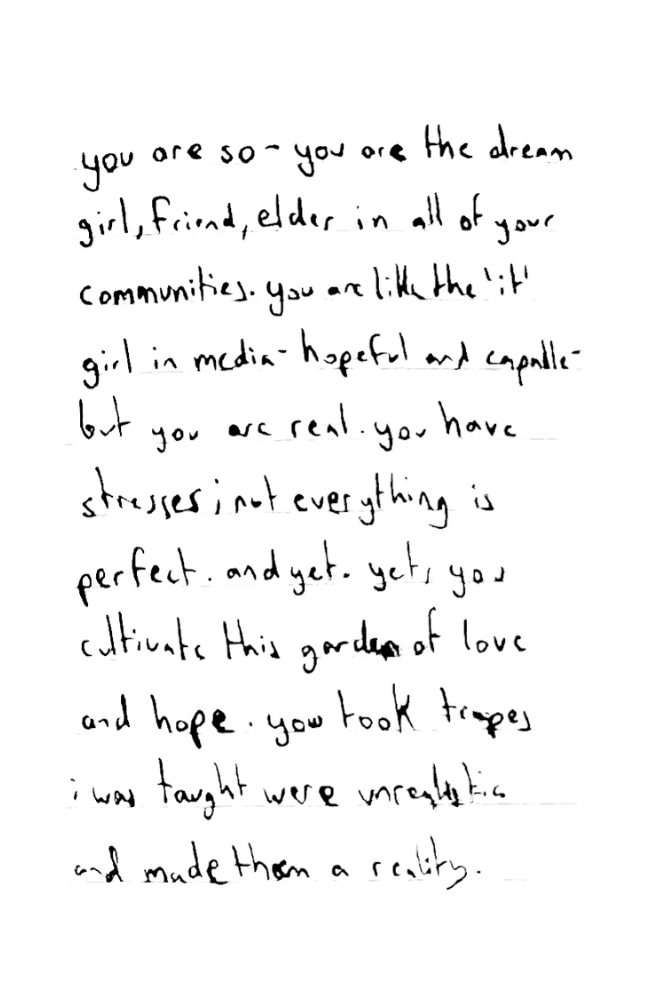 you are so - you are the dream
girl, friend, elder in all of your
communities. you are like the 'it'
girl in media - hopeful and capable -
but you are real. you have
stresses; not everything is
perfect. and yet. yet, you
cultivate this garden of love
and hope. you took tropes
i was taught were unrealistic
and made them a reality.